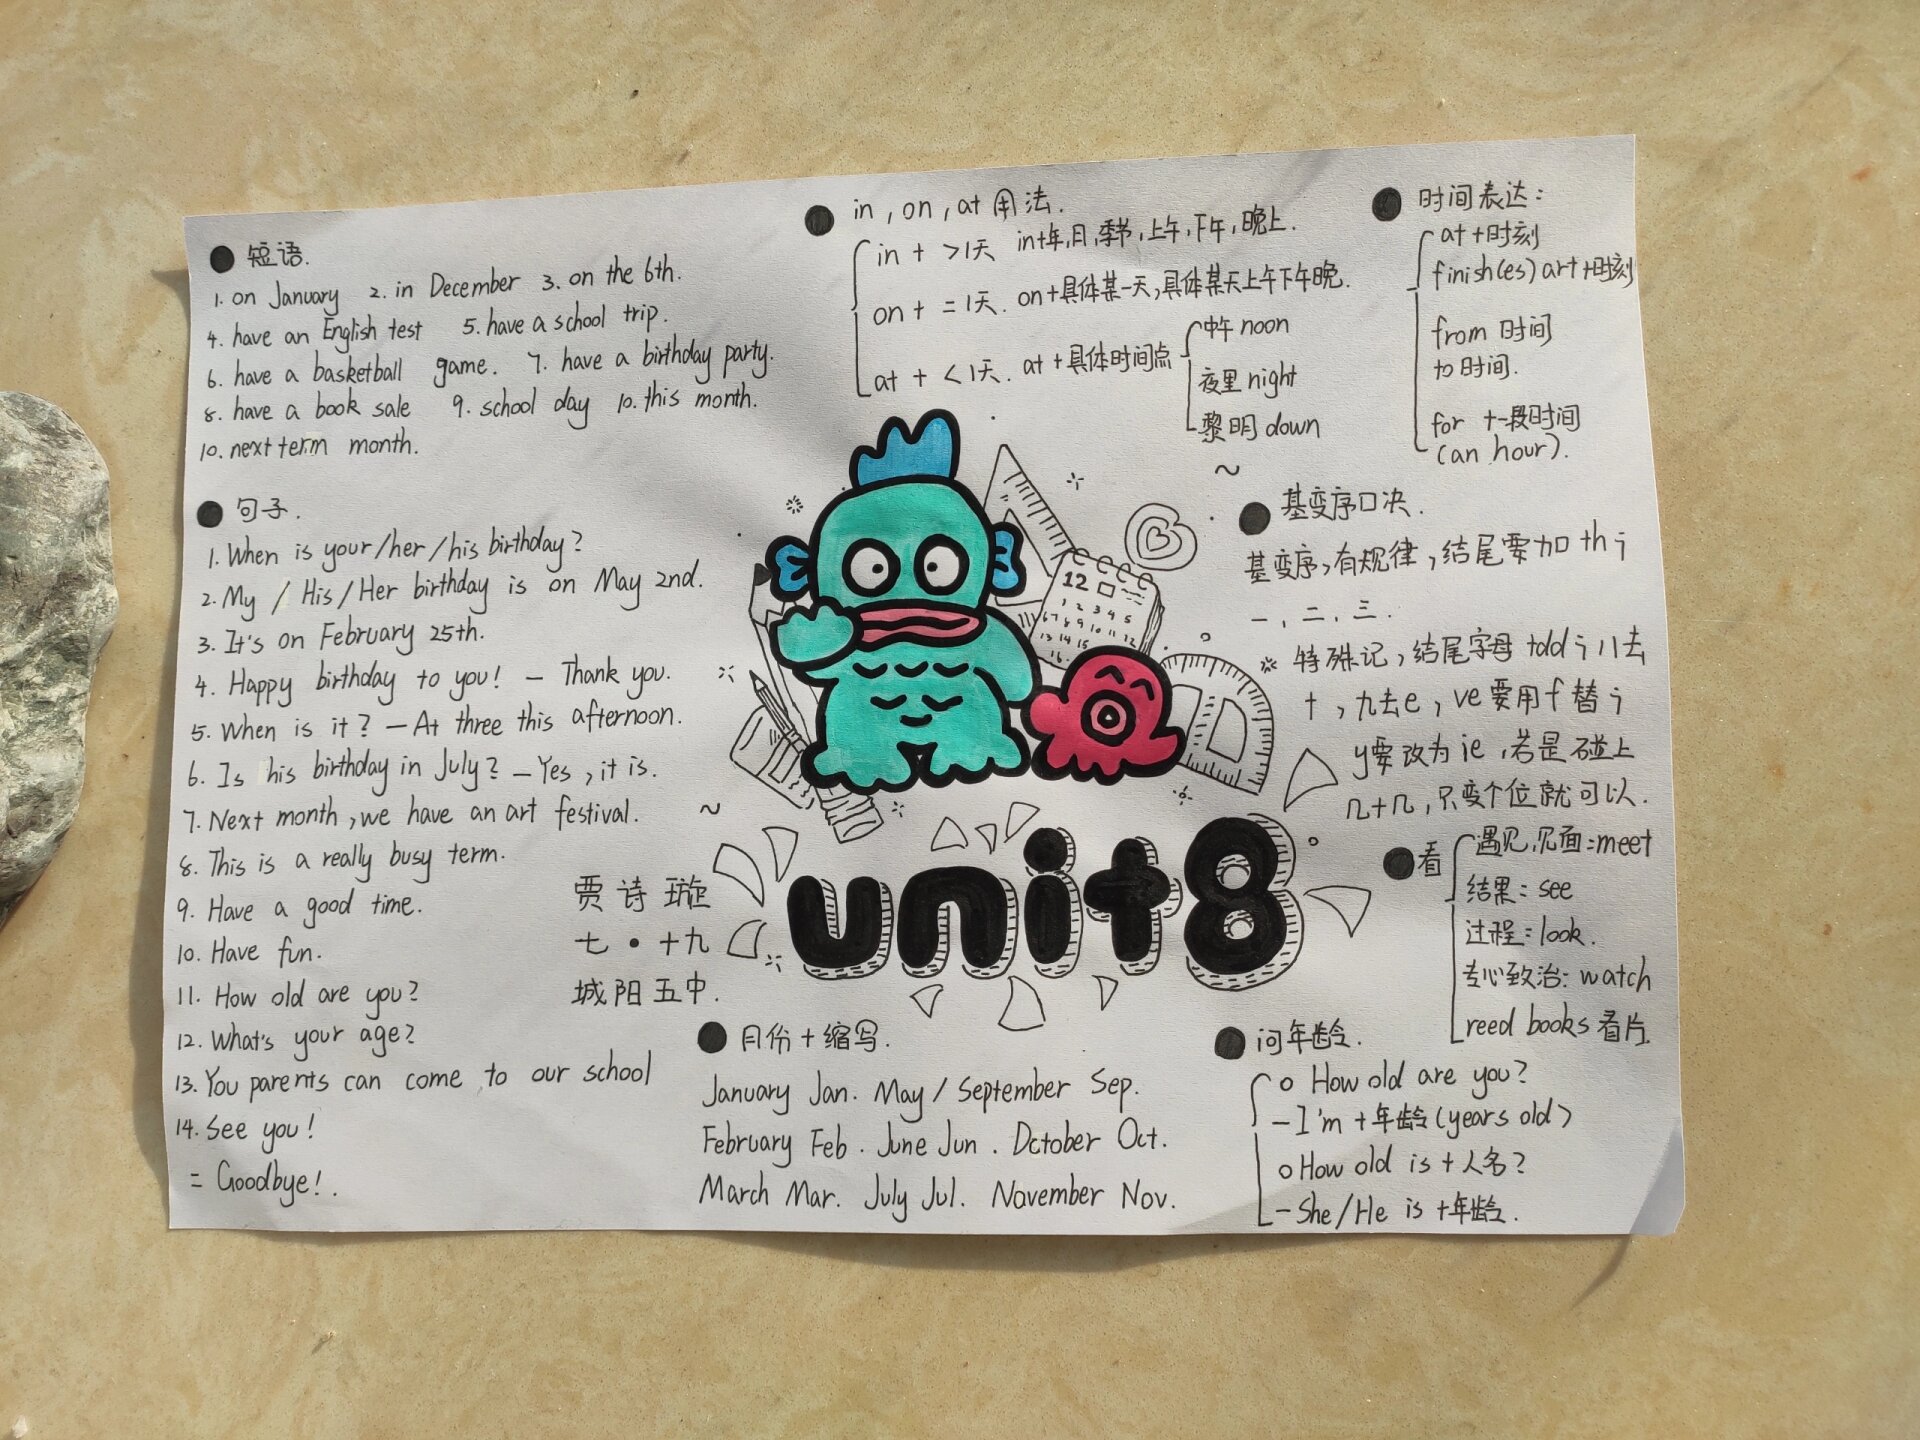 短语.
1. on January 2. in December 3. on the 6th.
4. have an English test 5. have a school trip.
6. have a basketball game. 7. have a birthday party.
8. have a book sale 9. school day 10. this month.
10. next term month.
句子.
1. When is your/her/his birthday?
2. My / His/Her birthday is on May 2nd.
3. It's on February 25th.
4. Happy birthday to you! — Thank you.
5. When is it? — At three this afternoon.
6. Is his birthday in July? — Yes, it is.
7. Next month, we have an art festival.
8. This is a really busy term.
9. Have a good time.
10. Have fun.
11. How old are you?
12. What's your age?
13. You parents can come to our school
14. See you!
= Goodbye!.
贾诗璇
七·十九
城阳五中.
in, on, at 用法.
in + >1天 in+年,月,季节,上午,下午,晚上.
on + =1天. on+具体某一天,具体某天上午下午晚.
at + <1天. at+具体时间点
中午 noon
夜里 night
黎明 down
12
1 2 3 4 5
6 7 8 9 10 11 12
13 14 15
16.
unit8
月份+缩写.
January Jan. May / September Sep.
February Feb. June Jun. October Oct.
March Mar. July Jul. November Nov.
时间表达:
at +时刻
finish(es) art +时刻
from 时间
to 时间.
for +一段时间
(an hour).
基变序口决.
基变序,有规律,结尾要加th;
一,二,三.
特殊记,结尾字母tdd;八去
t,九去e,ve要用f替;
y要改为ie,若是碰上
几十几,只变个位就可以.
看
遇见,见面:meet
结果:see
过程:look.
专心致治:watch
reed books 看片.
问年龄.
o How old are you?
—I'm +年龄(years old)
o How old is +人名?
—She/He is +年龄.